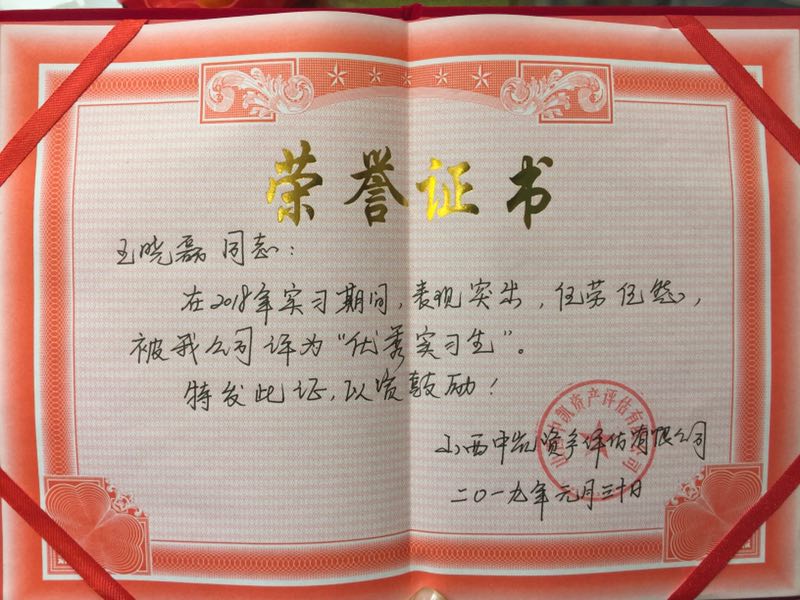 荣誉证书
王晓磊同志：
在2018年实习期间，表现突出，任劳任怨，
被我公司评为“优秀实习生”。
特发此证，以资鼓励！
山西中凯资产评估有限公司
山西中凯资产评估有限公司
二〇一九年元月三十日